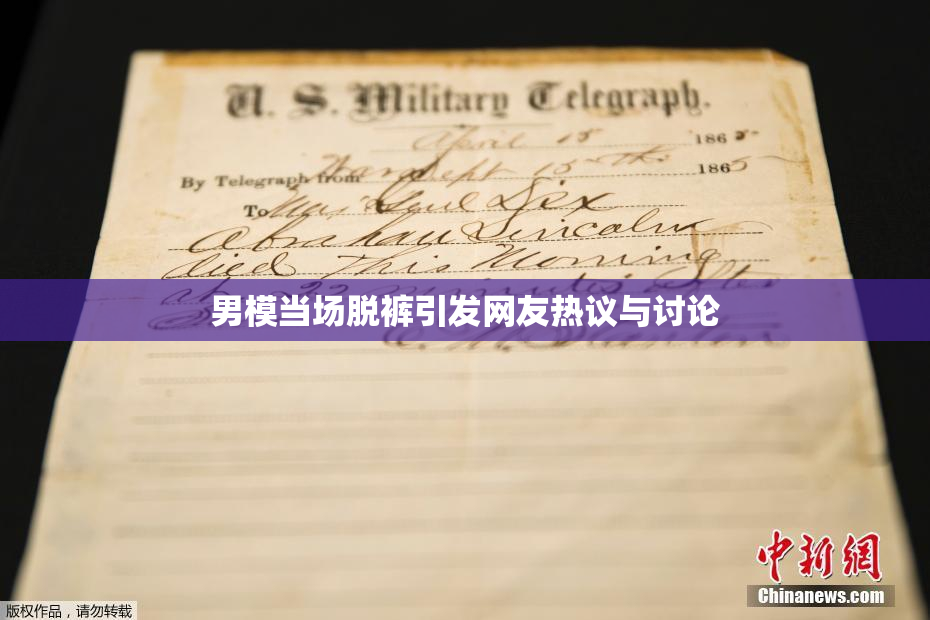 U. S. Military Telegraph.
April 15 1865
By Telegraph from War Dept 15th 1865
To Maj Genl Dix
Abraham Lincoln
died This Morning
at 22 minutes after
男模当场脱裤引发网友热议与讨论
E. M. Stanton
中新网
Chinanews.com
版权作品，请勿转载